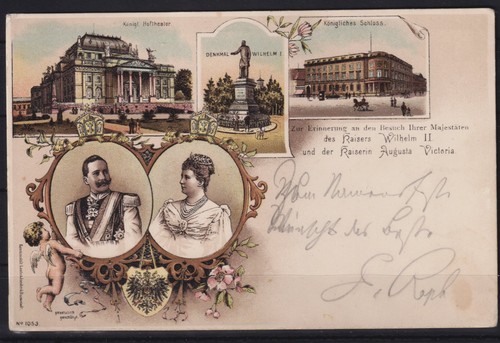 Königl. Hoftheater
DENKMAL WILHELM I
Königliches Schloss.
Zur Erinnerung an den Besuch Ihrer Majestäten
des Kaisers Wilhelm II
und der Kaiserin Augusta Victoria
Wünscht das Beste
GESETZLICH
GESCHÜTZT
No 1253